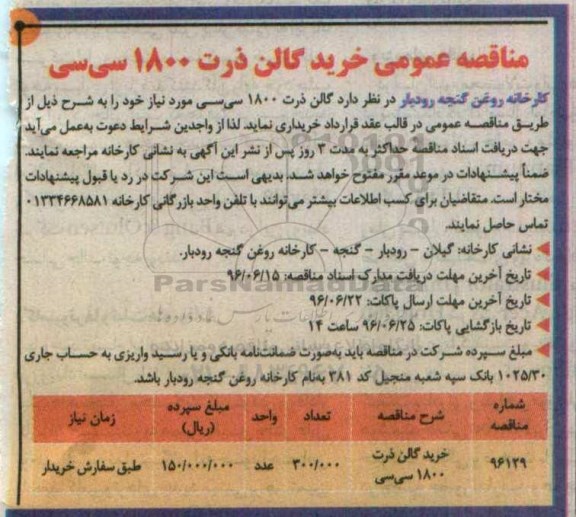 مناقصه عمومی خرید گالن ذرت ۱۸۰۰ سی‌سی
کارخانه روغن گنجه رودبار در نظر دارد گالن ذرت ۱۸۰۰ سی‌سی مورد نیاز خود را به شرح ذیل از
طریق مناقصه عمومی در قالب عقد قرارداد خریداری نماید. لذا از واجدین شرایط دعوت به‌عمل می‌آید
جهت دریافت اسناد مناقصه حداکثر به مدت ۳ روز پس از نشر این آگهی به نشانی کارخانه مراجعه نمایند.
ضمناً پیشنهادات در موعد مقرر مفتوح خواهد شد. بدیهی است این شرکت در رد یا قبول پیشنهادات
مختار است. متقاضیان برای کسب اطلاعات بیشتر می‌توانند با تلفن واحد بازرگانی کارخانه ۰۱۳۳۴۶۶۸۵۸۱
تماس حاصل نمایند.
نشانی کارخانه: گیلان - رودبار - گنجه - کارخانه روغن گنجه رودبار.
تاریخ آخرین مهلت دریافت مدارک اسناد مناقصه: ۹۶/۰۶/۱۵
ParsNamadData
تاریخ آخرین مهلت ارسال پاکات: ۹۶/۰۶/۲۲
تاریخ بازگشایی پاکات: ۹۶/۰۶/۲۵ ساعت ۱۴
مبلغ سپرده شرکت در مناقصه باید به‌صورت ضمانت‌نامه بانکی و یا رسید واریزی به حساب جاری
۱۰۲۵/۳۰ بانک سپه شعبه منجیل کد ۳۸۱ به‌نام کارخانه روغن گنجه رودبار باشد.
شماره مناقصه شرح مناقصه تعداد واحد مبلغ سپرده (ریال) زمان نیاز
۹۶۱۲۹ خرید گالن ذرت ۱۸۰۰ سی‌سی ۳۰۰/۰۰۰ عدد ۱۵۰/۰۰۰/۰۰۰ طبق سفارش خریدار